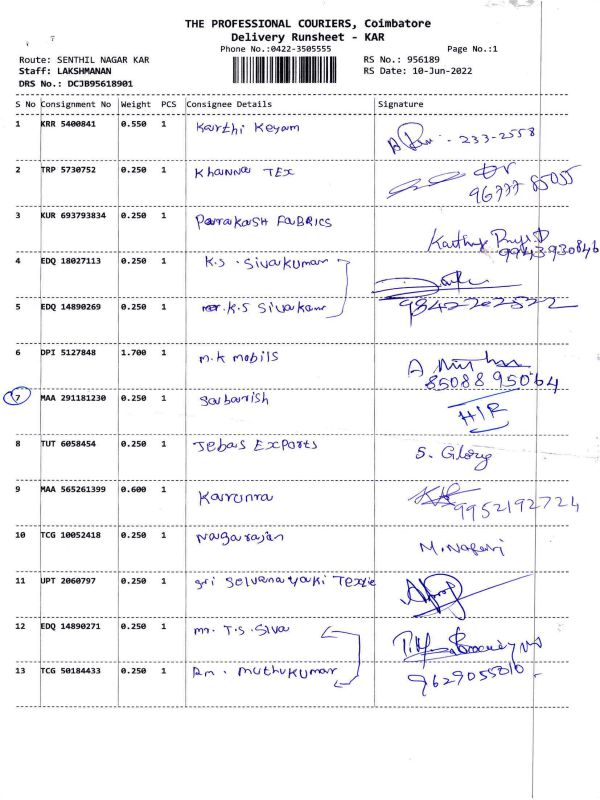 THE PROFESSIONAL COURIERS, Coimbatore
Delivery Runsheet - KAR
Phone No.:0422-3505555
Page No.:1
Route: SENTHIL NAGAR KAR
RS No.: 956189
Staff: LAKSHMANAN
RS Date: 10-Jun-2022
DRS No.: DCJB95618901
S No Consignment No Weight PCS Consignee Details Signature
1 KRR 5400841 0.550 1 Karthi Keyam 233-2558
2 TRP 5730752 0.250 1 Khanna TEX 96777 85055
3 KUR 693793834 0.250 1 Parrakash FABRICS 9943930846
4 EDQ 18027113 0.250 1 K.S. Sivakumar
5 EDQ 14890269 0.250 1 K.S Sivakumar 9842202522
6 DPI 5127848 1.700 1 M.K mobils 85088 95064
7 MAA 291181230 0.250 1 Sabarish H/R
8 TUT 6058454 0.250 1 Jebas Exports S. Glory
9 MAA 565261399 0.600 1 Karunra 9952192724
10 TCG 10052418 0.250 1 Nagarajan
11 UPT 2060797 0.250 1 Sri Selvanayaki Textile
12 EDQ 14890271 0.250 1 mr. T.S. Siva
13 TCG 50184433 0.250 1 Rm. Muthukumar 9629055010